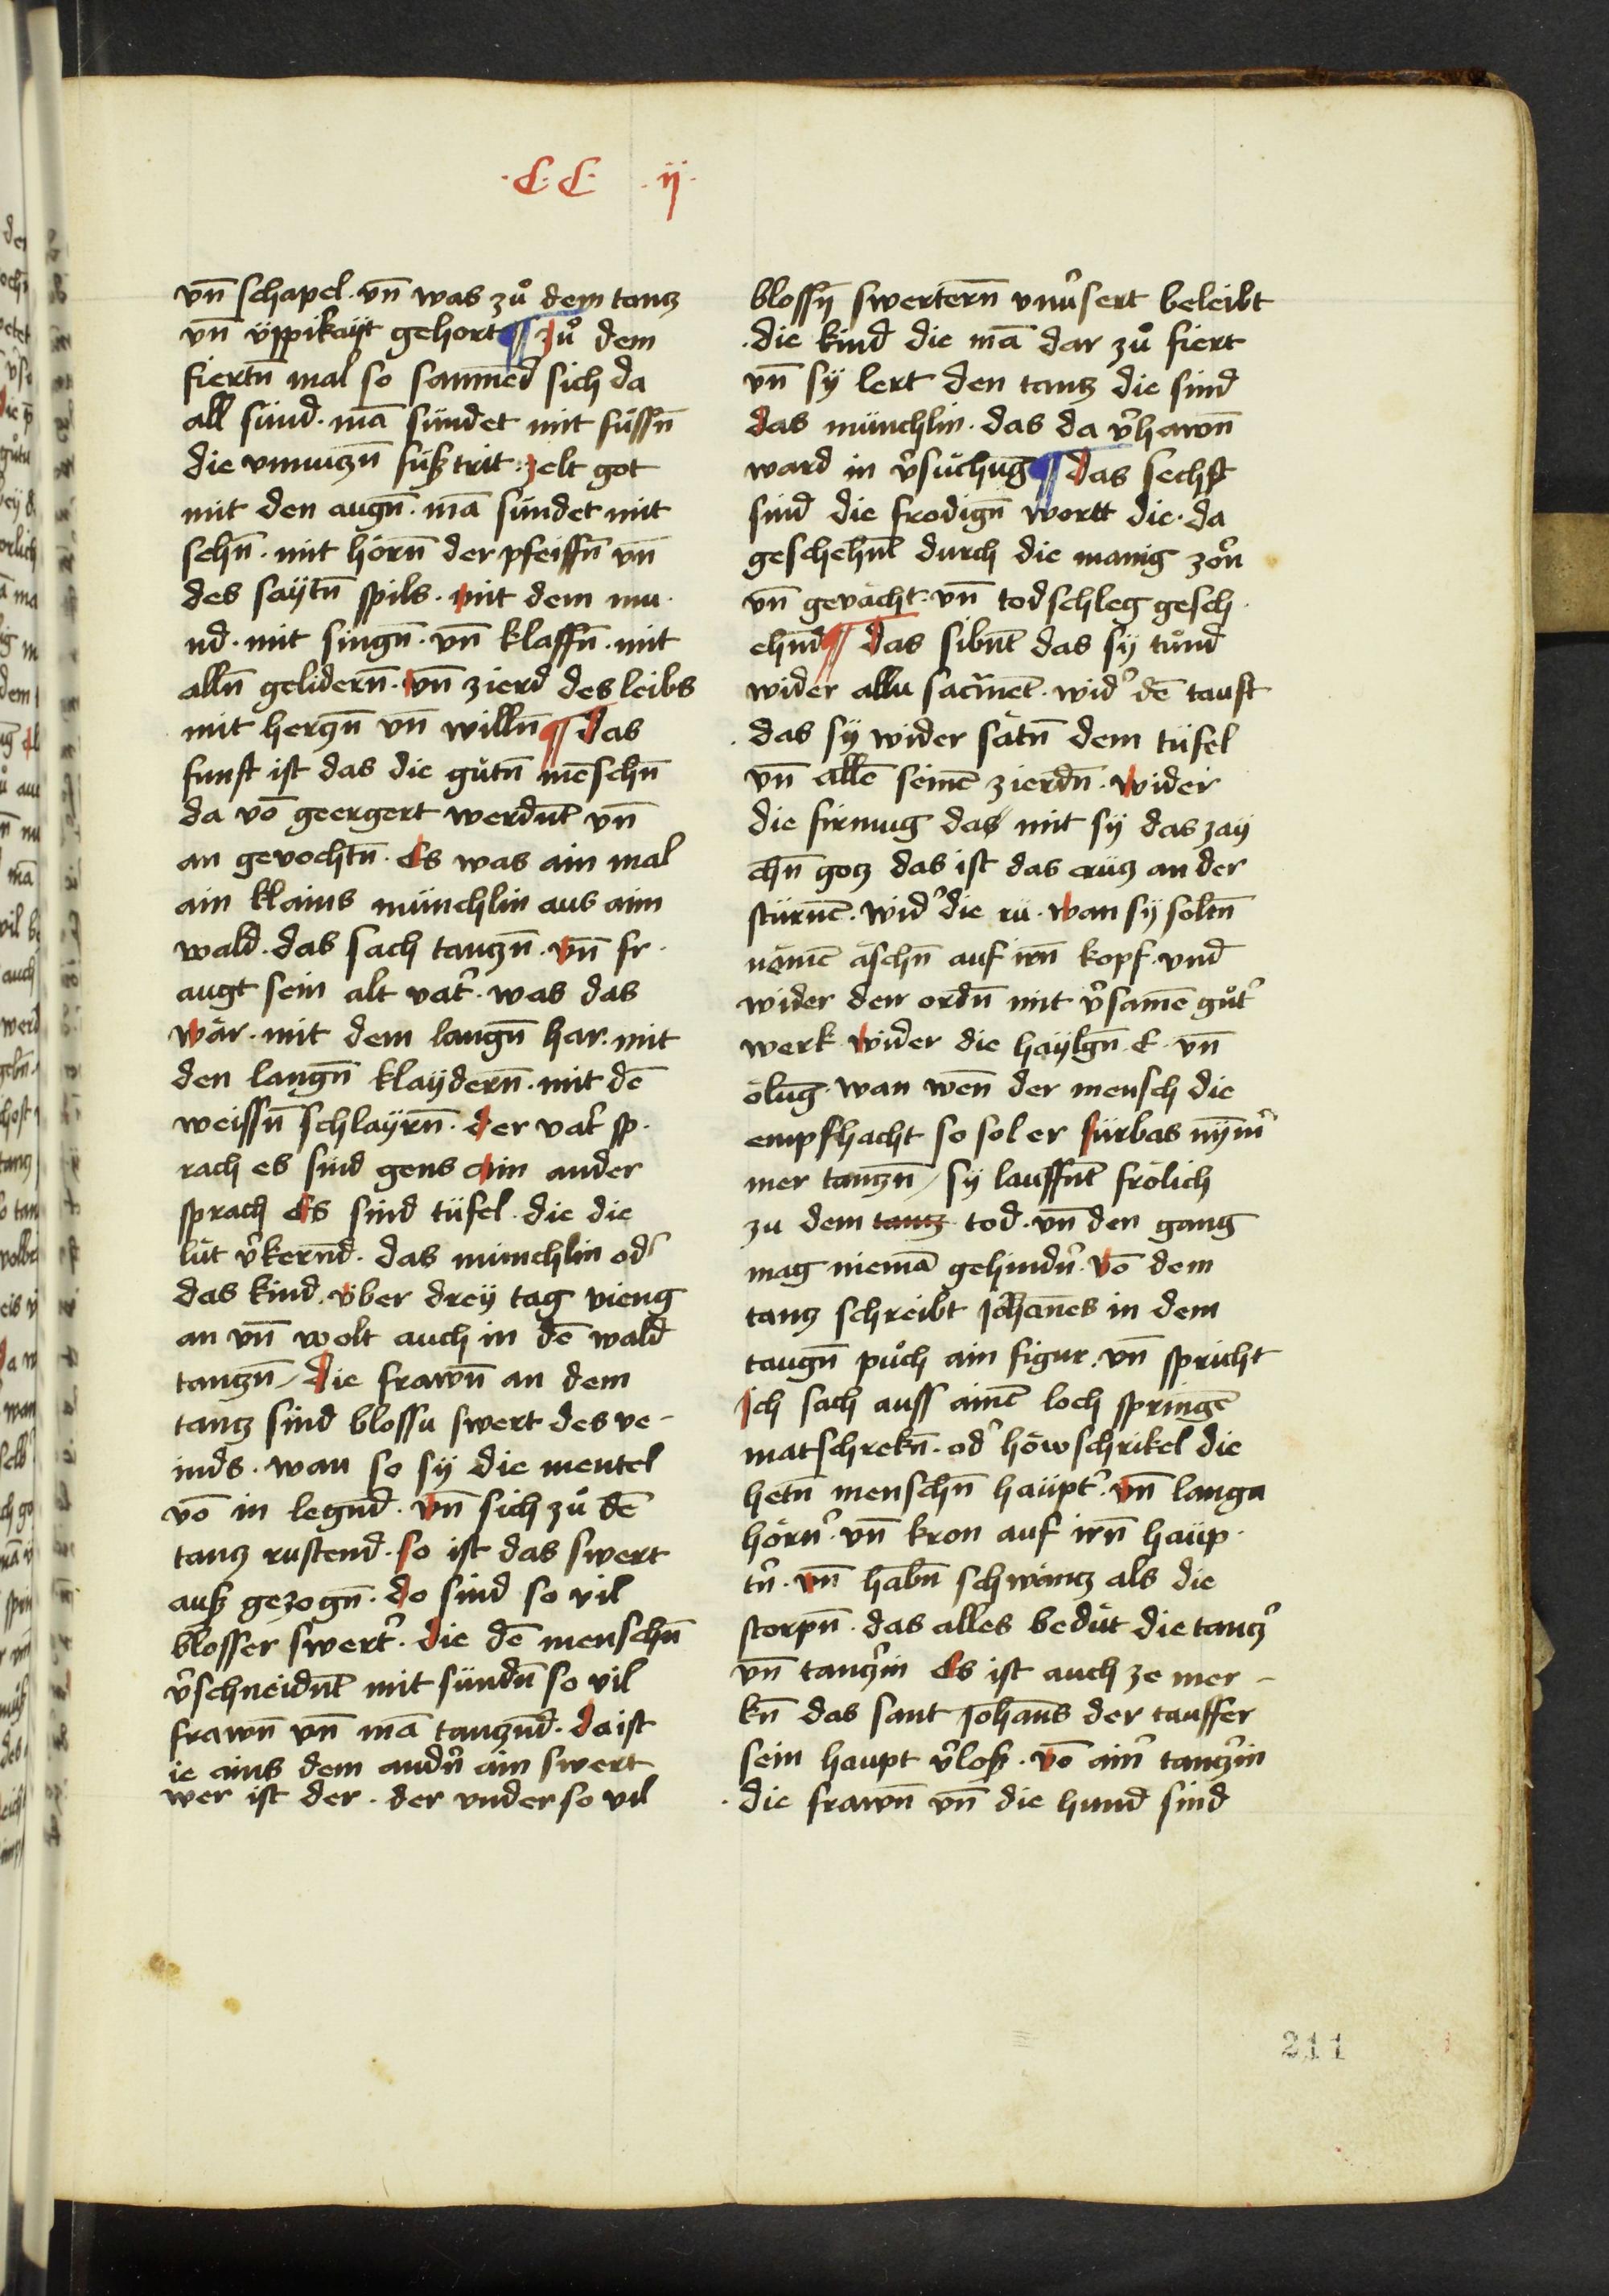 ·C·C· ·ij·
vn̄ schapel · vn̄ was zuͦ dem tantz
vn̄ üppikaÿt gehort ¶ Zuͦ dem
fiertn̄ mal so sammed sich da
all sünd · mā sündet mit füssn̄
die vnnutzn̄ fuͤßtrit · zelt got
mit den augn̄ · mā sündet mit
sehn̄ · mit hörn̄ der pfeiffn̄ vn̄
des saÿtn̄ spils · mit dem mu·
nd · mit singn̄ · vn̄ klaffn̄ · mit
alln̄ gelidern̄ · vn̄ zierd des leibs
mit hertzn̄ vn̄ willn̄ ¶ Das
funft ist das die guͤtn̄ mēschn̄
da vō geergert werdn̄t vn̄
an gevochtn̄ · Es was ain mal
ain klains münchlin aus aim
wald · das sach tantzn̄ · vn̄ fr·
augt sein alt vat' · was das
wär · mit dem langn̄ har · mit
den langn̄ klaÿdern̄ · mit dē
weissn̄ schlaÿrn̄ · der vat' sp·
rach es sind gens ain ander
sprach Es sind tüfel · die die
lüt v'kernd · das münchlin od'
das kind · über dreÿ tag vieng
an vn̄ wolt auch in dē wald
tantzn̄ / Die frawn̄ an dem
tantz sind blossu swert des ve-
inds · wan so sÿ die mentel
vō in legnd · vn̄ sich zuͦ dē
tantz rustend · so ist das swert
auß gezogn̄ · do sind so vil
blosser swert' · die dē menschn̄
v'schneidn̄t mit sündn̄ so vil
frawn̄ vn̄ mā tantznd · da ist
ie ains dem andn̄ ain swert
wer ist der · der vnder so vil
blossn̄ swertern̄ vnv'sert beleibt
· die kind die mā dar zuͦ fiert
vn̄ sÿ lert den tantz die sind
das münchlin · das da v'hawn̄
ward in v'suͤchūg ¶ Das sechst
sind die frodign̄ wortt die · da
geschehn̄t durch die manig zorn
vn̄ gevächt · vn̄ todschleg gesch·
ehnd ¶ Das sibn̄t das sÿ tuͦnd
wider allu sacrm̄et · wid' dē tauft
· das sÿ wider satn̄ dem tüfel
vn̄ allē seinē zierdn̄ · wider
die firmug das mit sÿ das zaÿ
chn̄ gotz das ist das crütz an der
stürnē · wid' die rü · wan sÿ soltn̄
nämē äschn̄ auf irn̄ kopf · vnd
wider den ordn̄ mit v'samē guͤt'
werk wider die haÿlgn̄ E · vn̄
ölūg · wan wēn der mensch die
empfhacht so sol er fürbas nÿm'
mer tantzn̄ / sÿ lauffn̄t frölich
zu dem tantz tod · vn̄ den gang
mag niemā gehindn̄ · vō dem
tantz schreibt Johānes in dem
taugn̄ puͦch ain figur · vn̄ spricht
Ich sach auss ainē loch springē
matschrekn̄ · od' höwschrikel die
hetn̄ menschn̄ haüpt' · vn̄ langu
hörn' · vn̄ kron auf irn̄ haüp·
tn̄ · vn̄ habn̄ schwäntz als die
scorpn̄ · das alles bedüt die tantz'
vn̄ tantz'in Es ist auch ze mer-
kn̄ das sant Johans der tauffer
sein haupt v'loß · vō ain' tantz'in
· die frawn̄ vn̄ die hund sind
211